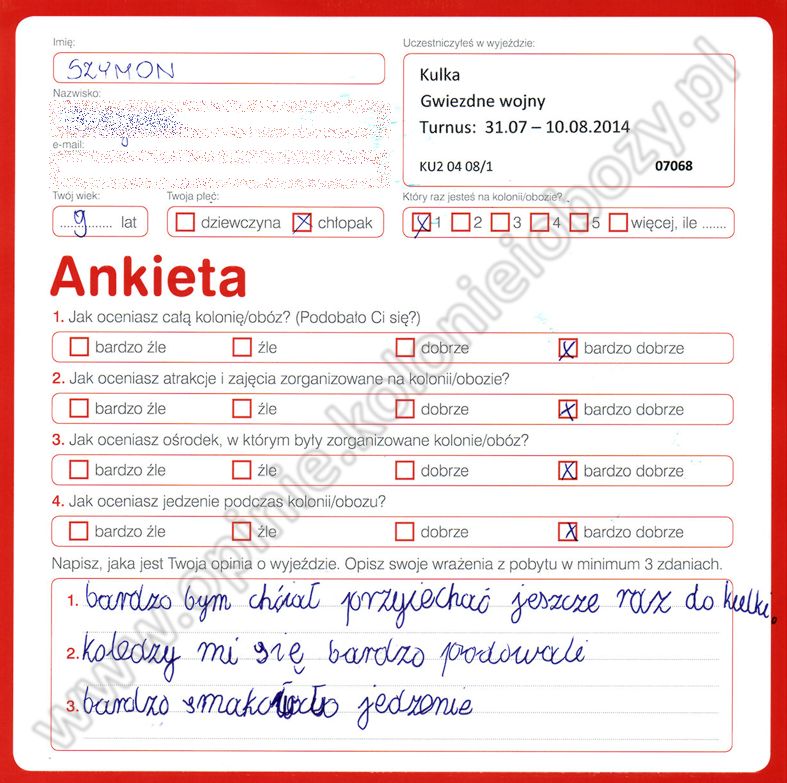 Imię:
SZYMON
Nazwisko:
e-mail:
Twój wiek:
9 lat
Twoja płeć:
dziewczyna chłopak
Uczestniczyłeś w wyjeździe:
Kulka
Gwiezdne wojny
Turnus: 31.07 – 10.08.2014
KU2 04 08/1 07068
Który raz jesteś na kolonii/obozie?
1 2 3 4 5 więcej, ile .......
Ankieta
1. Jak oceniasz całą kolonię/obóz? (Podobało Ci się?)
bardzo źle źle dobrze bardzo dobrze
2. Jak oceniasz atrakcje i zajęcia zorganizowane na kolonii/obozie?
bardzo źle źle dobrze bardzo dobrze
3. Jak oceniasz ośrodek, w którym były zorganizowane kolonie/obóz?
bardzo źle źle dobrze bardzo dobrze
4. Jak oceniasz jedzenie podczas kolonii/obozu?
bardzo źle źle dobrze bardzo dobrze
Napisz, jaka jest Twoja opinia o wyjeździe. Opisz swoje wrażenia z pobytu w minimum 3 zdaniach.
1. bardzo bym chciał przyjechać jeszcze raz do kulki.
2. koledzy mi się bardzo podowali
3. bardzo smakowało jedzenie
www.opinie.kolonieiobozy.pl